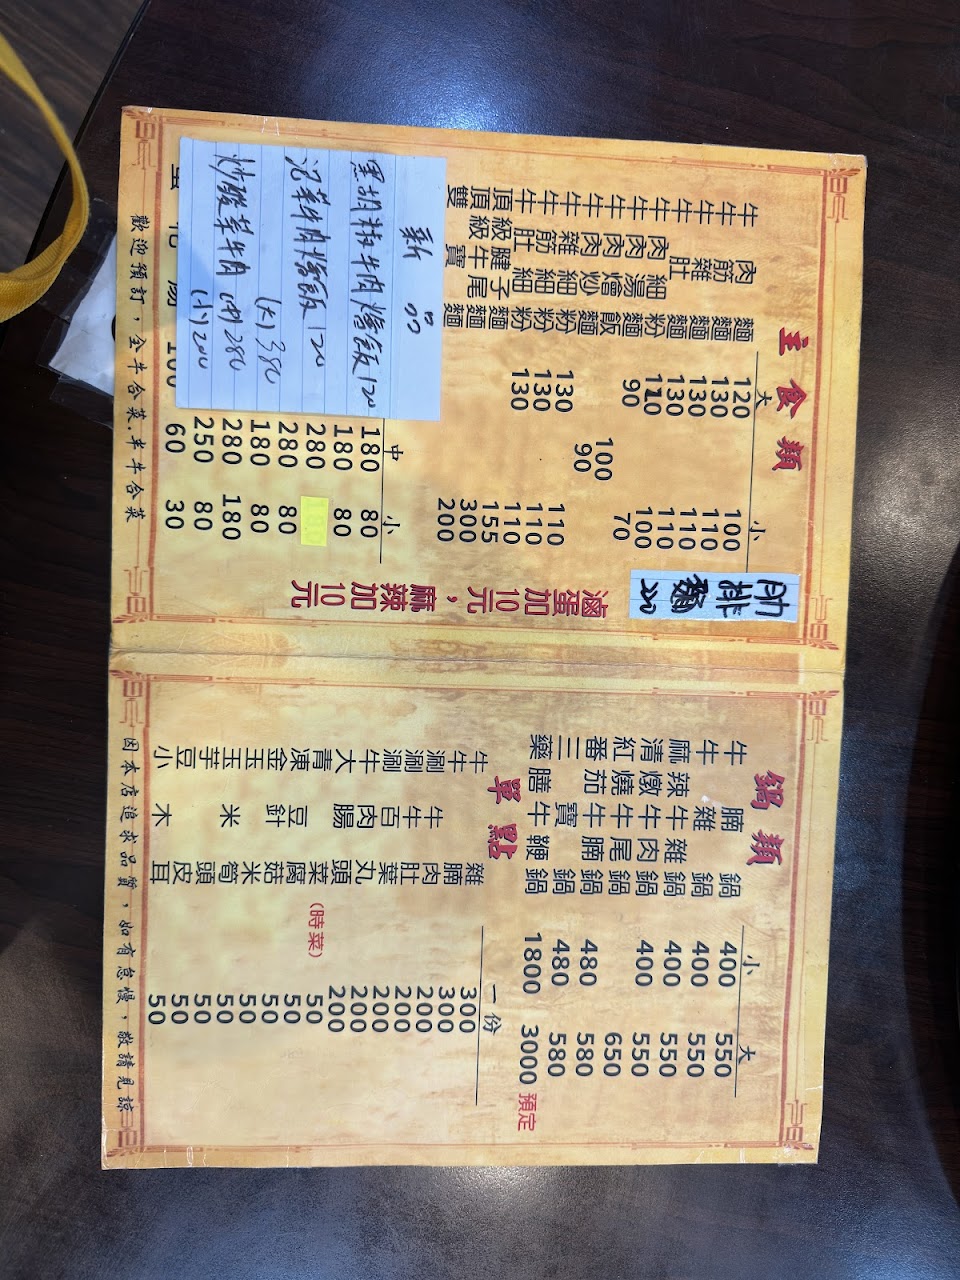 主食類
大 小
牛肉麵 120 100
牛筋麵 130 110
牛雜麵 130 110
牛肚麵 130 110
牛肉細粉 110 100
牛肉湯麵 90 70
牛肉燴飯 100
牛肉炒麵 90
牛雜細粉 130 110
牛筋細粉 130 110
牛肚細粉 130 110
頂級腱子麵 155
頂級牛尾麵 300
雙寶麵 200
新品
黑胡椒牛肉燴飯120
沼菜牛肉燴飯120
(大)380
炒酸菜牛肉(中)280
(小)200
中 小
180 80
180 80
280
280 80
180 80
280 180
250 80
蛋花湯 100 60 30
豬排 220
滷蛋加10元，麻辣加10元
歡迎預訂，全牛合菜.半牛合菜
鍋類
小 大
牛腩鍋 400 550
牛雜鍋 400 550
麻辣牛雜鍋 400 550
清燉牛肉鍋 400 550
紅燒牛尾鍋 650
番茄牛腩鍋 480 580
三寶鍋 480 580
藥膳牛鞭鍋 1800 3000 預定
單點
一份
牛雜 300
牛腩 300
涮牛肉 200
涮牛肚 200
涮百葉 200
牛肉丸 200
大腸頭 200
青菜 (時菜) 50
凍豆腐 50
金針菇 50
玉米 50
玉米筍 50
芋頭 50
豆皮 50
小木耳 50
因本店追求品質，如有怠慢，敬請見諒